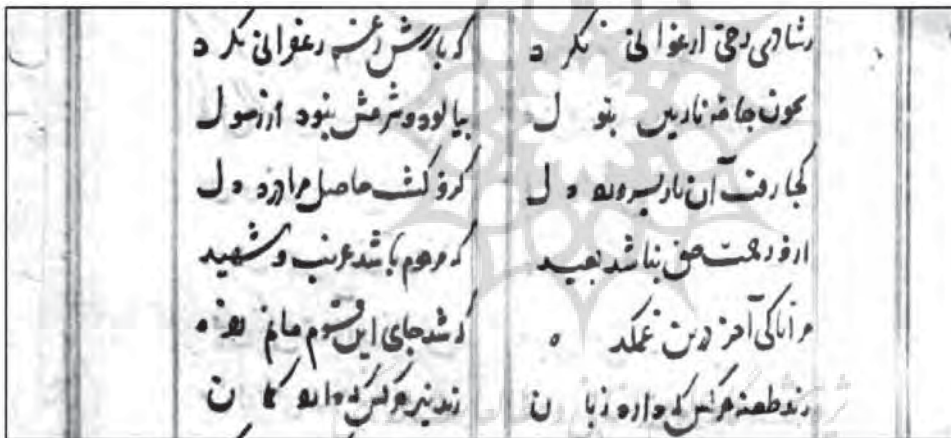 رشادی رخی ارغوانی نکرد که بازش زغم زعفرانی نکرد
بخون جامه نازنین بتول بیالود و شرمش نبود از رسول
کجا رفت آن ناز پرورده دل کزو گشت حاصل مرا درد دل
ازو رحمت حق نباشد بعید که مرحوم باشد غریب و شهید
مرا تا کی آخر درین غمکده که شد جای این قوم ماتم زده
زند طعنه هر کس که دارد زبان زند تیر هر کس که دارد کمان